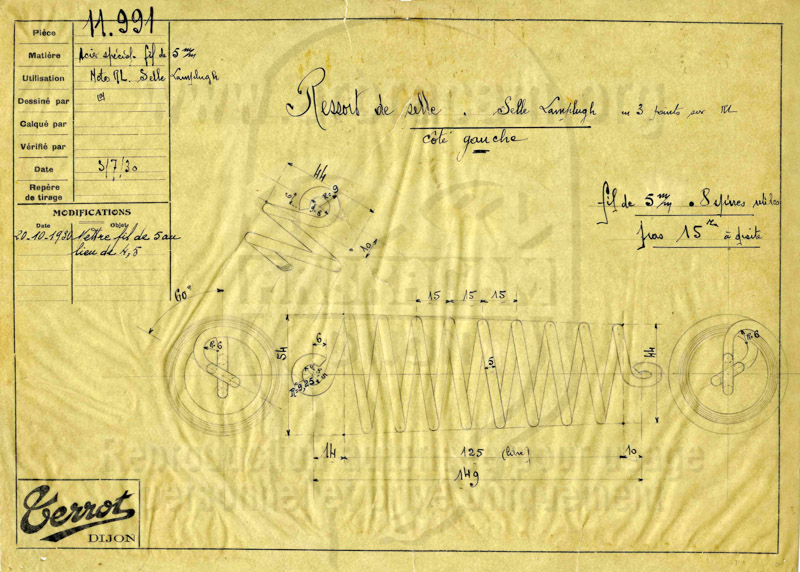 Pièce 11.991
Matière Acier spécial. fil de 5 m/m
Utilisation Motos RL. Selle Lamplugh
Dessiné par
Calqué par
Vérifié par
Date 3/7/30
Repère de tirage
MODIFICATIONS
Date Objet
20-10-1930 Mettre fil de 5 au
lieu de 4,5
Ressort de selle . Selle Lamplugh en 3 points sur
côté gauche
fil de 5 m/m . 8 spires utiles
pas 15 m à droite
44
60°
15 15 15
54
6
5
44
14 125 (libre) 10
149
Terrot
DIJON